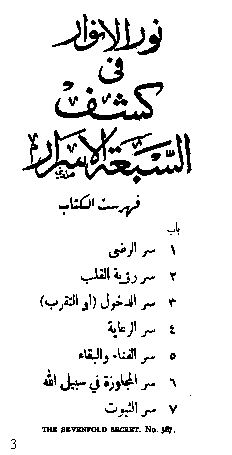 نور الانوار
فى
كشف
السبعة الاسرار
فهرست الكتاب
باب
١ سر الرضى
٢ سر رؤية القلب
٣ سر الدخول (او التقرب)
٤ سر الرعاية
٥ سر الفناء والبقاء
٦ سر المجاوزة في سبيل الله
٧ سر الثبوت
THE SEVENFOLD SECRET. No. 387.
3